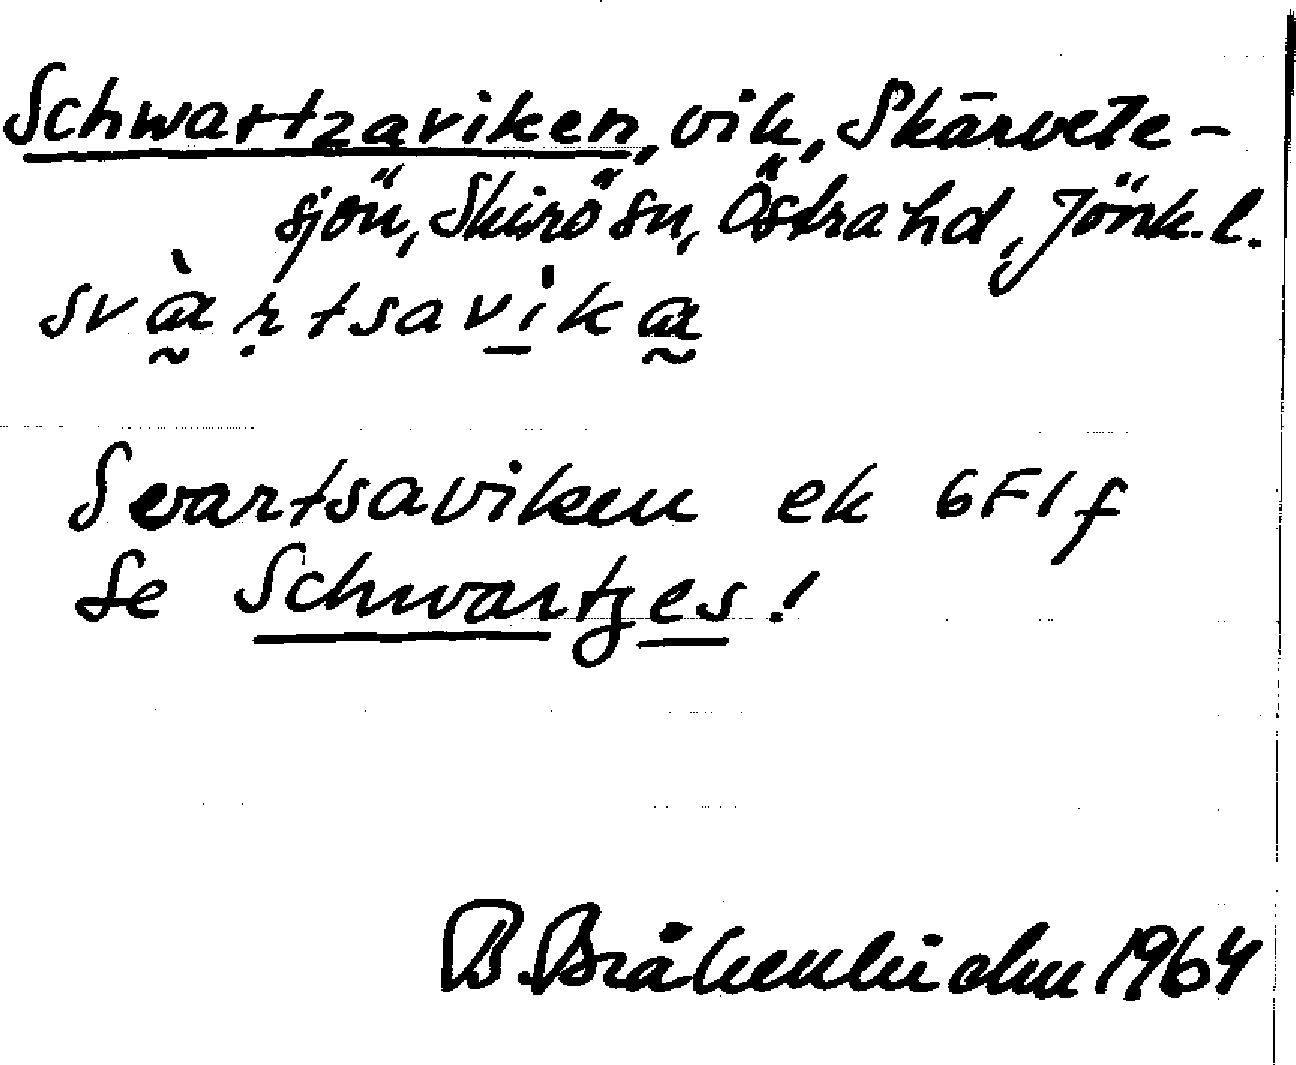 Schwartzaviken, vik, Skärvete-
sjön, Skirö sn, Östra hd, Jönk.l.
svà̰ṛtsavi̱ka̰
Svartsaviken ek 6F1f
Se Schwartzes!
B. 1964